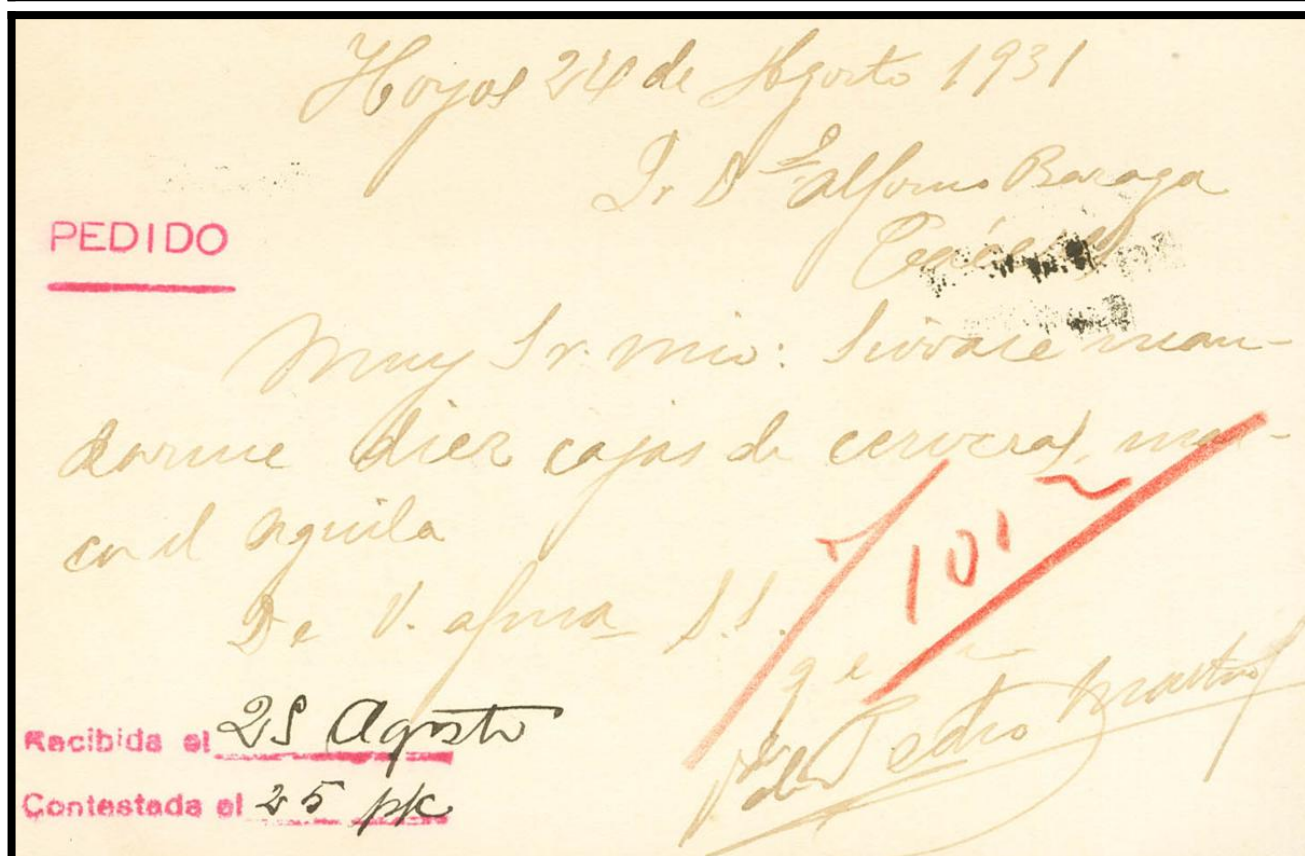 Hoyos 24 de Agosto 1931
Sr. Dn. Alfonso Baraga
Cáceres
PEDIDO
Muy Sr. mio: Sirvase man-
darme diez cajas de cervezas, mar-
ca el Aguila
De V. afma S.S.
101
Pedro Martin
Recibida el 25 Agosto
Contestada el 25 pk